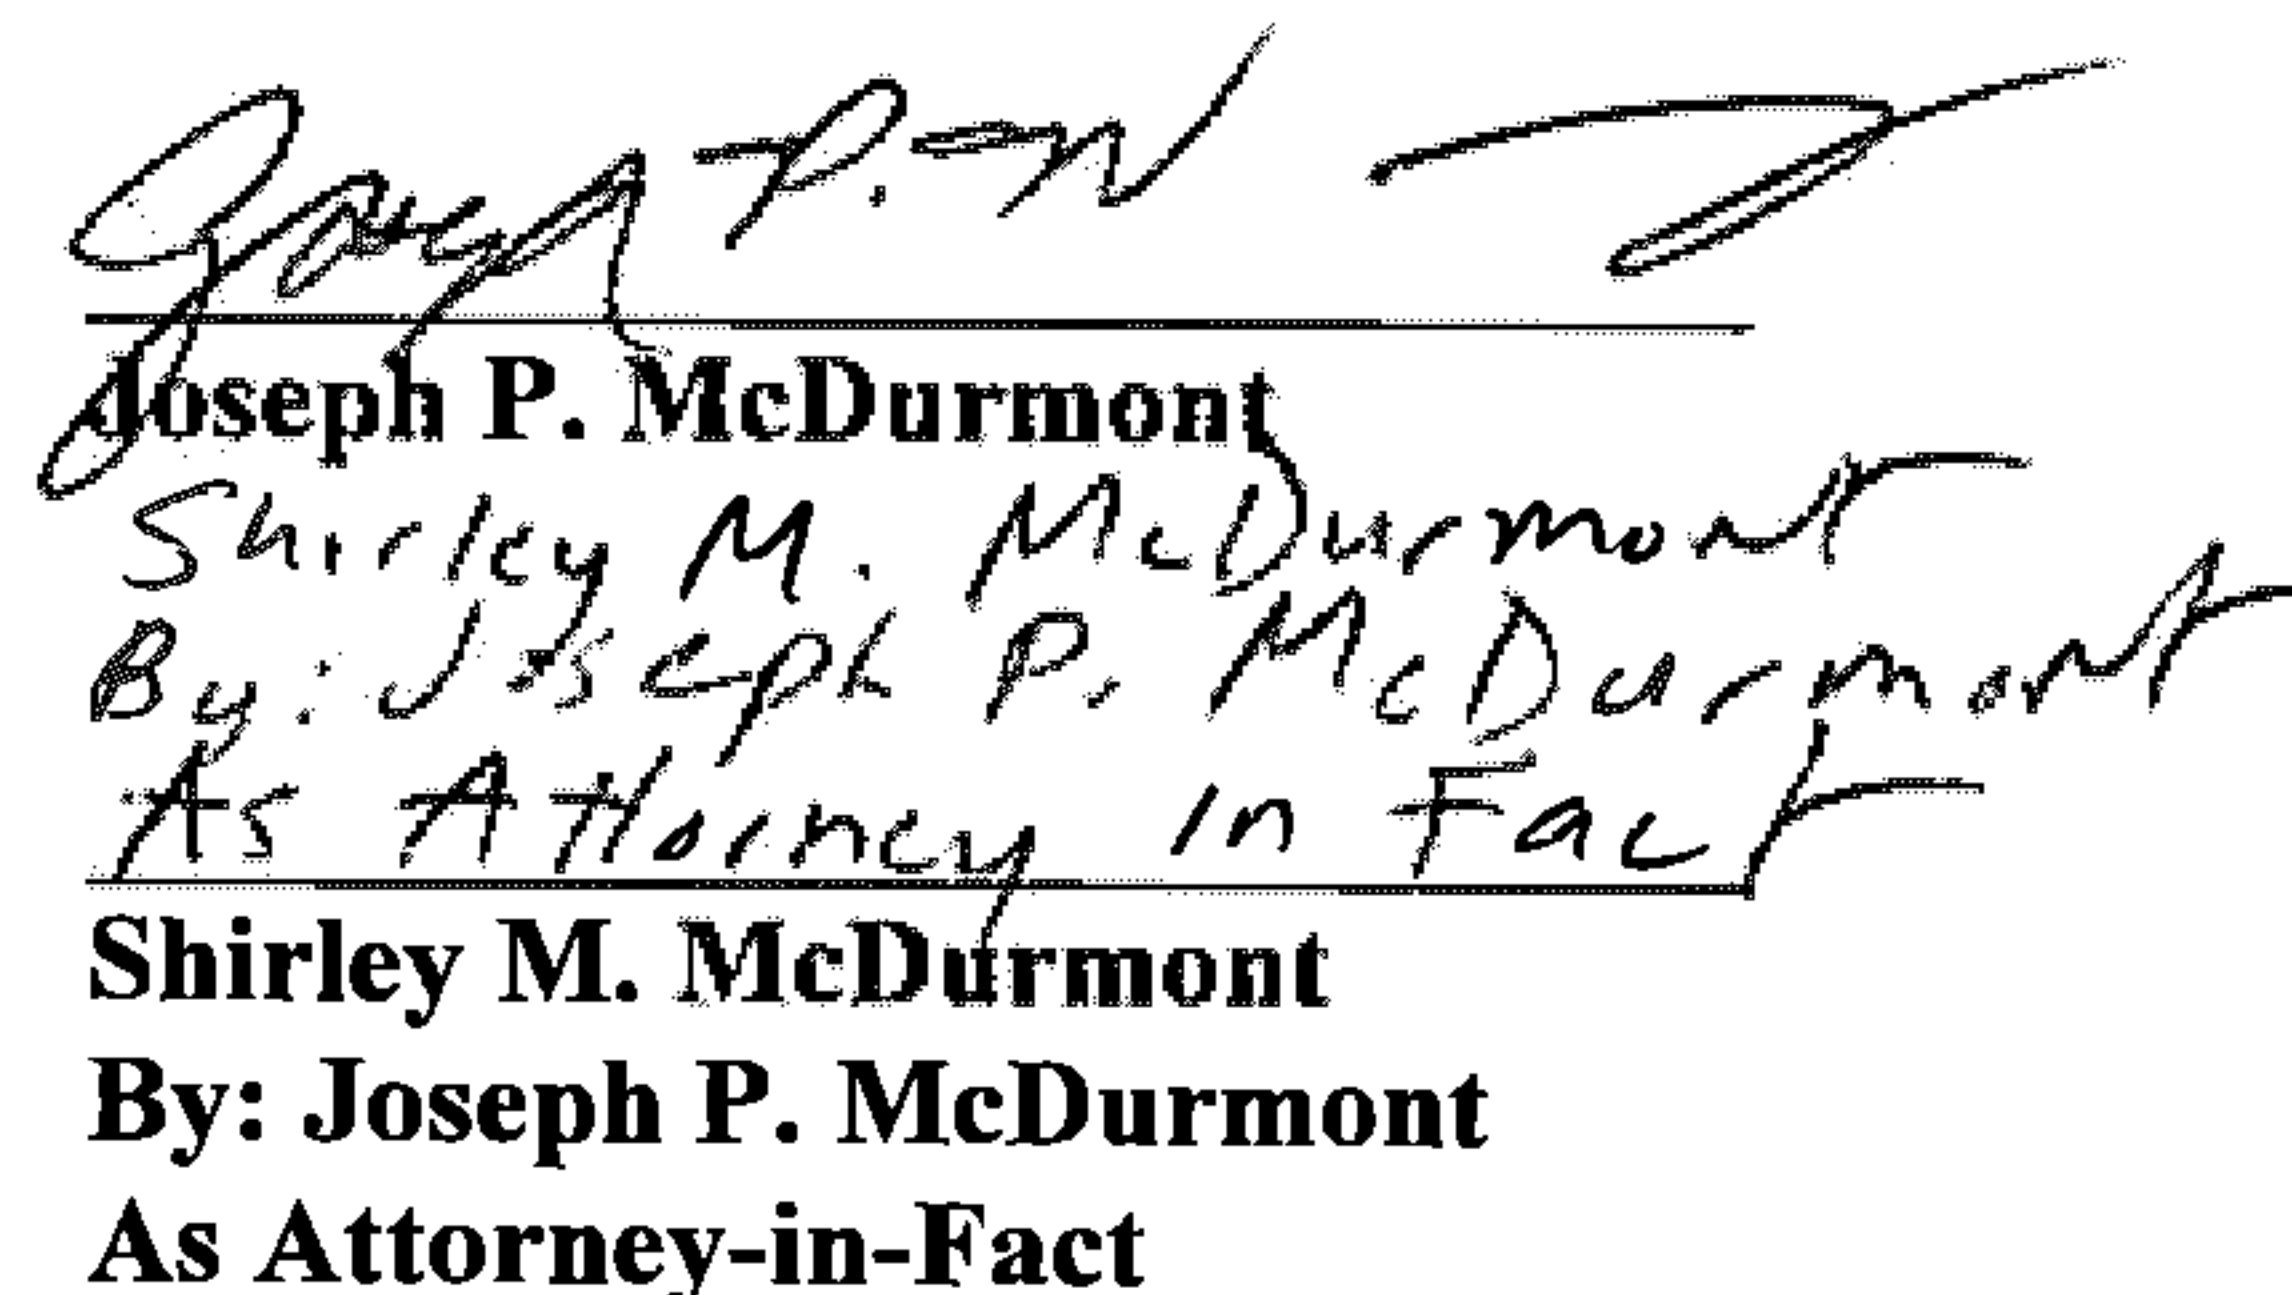 Joseph P.
Joseph P. McDurmont
Shirley M. McDurmont
By: Joseph P. McDurmont
As Attorney in Fact
Shirley M. McDurmont
By: Joseph P. McDurmont
As Attorney-in-Fact